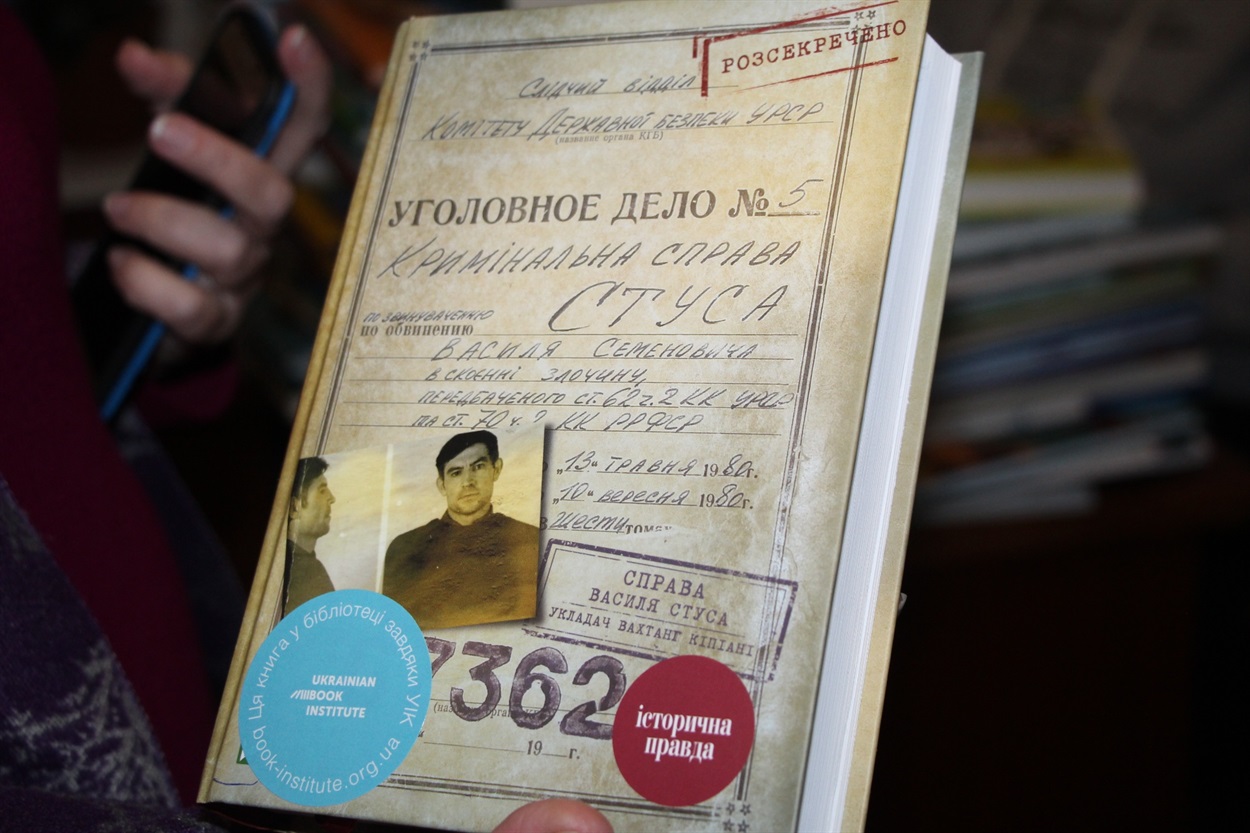 РОЗСЕКРЕЧЕНО
Слідчий відділ
Комітету Державної безпеки УРСР
(название органа КГБ)
УГОЛОВНОЕ ДЕЛО № 5
Кримінальна справа
Стуса
по звинуваченню
по обвинению
Василя Семеновича
в скоєнні злочину,
передбаченого ст. 62 ч. 2 КК УРСР
та ст. 70 ч. 2 КК РРФСР
„13“ травня 1980г.
„10“ вересня 1980г.
В шести томах
СПРАВА
ВАСИЛЯ СТУСА
УКЛАДАЧ ВАХТАНГ КІПІАНІ
7362
19 г.
Ця книга у бібліотеці завдяки УІК
book-institute.org.ua
UKRAINIAN
BOOK
INSTITUTE
історична
правда